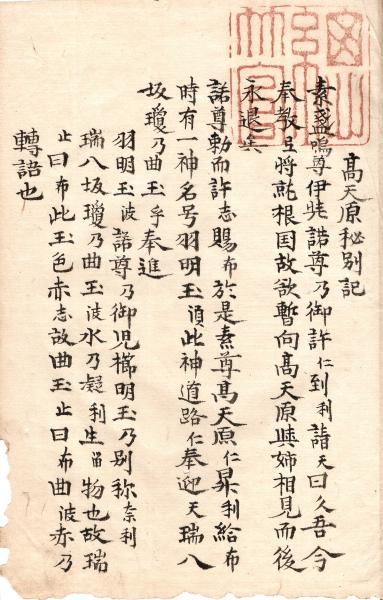 高天原秘別記
素盞嗚尊伊奘諾尊乃御許仁到利詣天曰久吾今
奉教旦将就根国故欲暫向高天原與姉相見而後
永退矣
諾尊勅而許志賜布於是素尊高天原仁昇利給布
時有一神名号羽明玉須此神道路仁奉迎天瑞八
坂瓊乃曲玉乎奉進
羽明玉波諾尊乃御児櫛明玉乃別称奈利
瑞八坂瓊乃曲玉波水乃凝利生留物也故瑞
止曰布此玉色赤志故曲玉止曰布曲波赤乃
轉語也